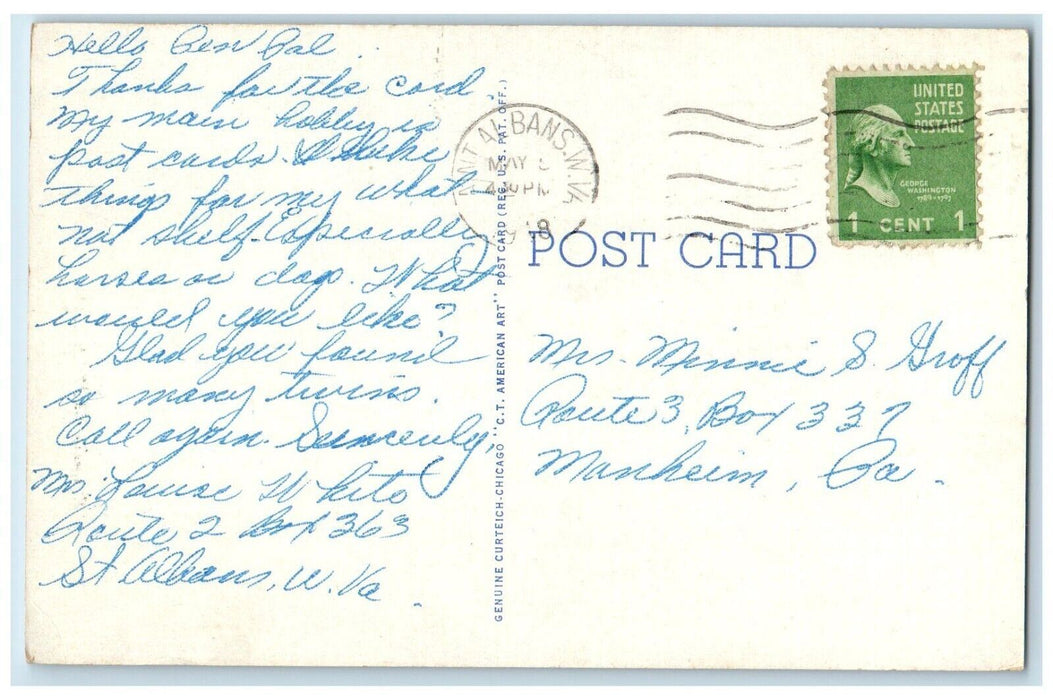 Hello Pen Pal.
Thanks for the card.
My main hobby is
post cards. I like
things for my what
not shelf. Especially
horses or dogs. What
would you like?
Glad you found
so many twins.
Call again. Sincerely,
Mrs. Louise White
Route 2 Box 363
St Albans, W. Va.
GENUINE CURTEICH-CHICAGO "C.T. AMERICAN ART" POST CARD (REG. U.S. PAT. OFF.)
SAINT ALBANS W.VA.
MAY
PM
POST CARD
UNITED
STATES
POSTAGE
GEORGE
WASHINGTON
1789-1797
1 CENT 1
Mrs. Minnie S. Groff
Route 3, Box 337
Manheim, Pa.